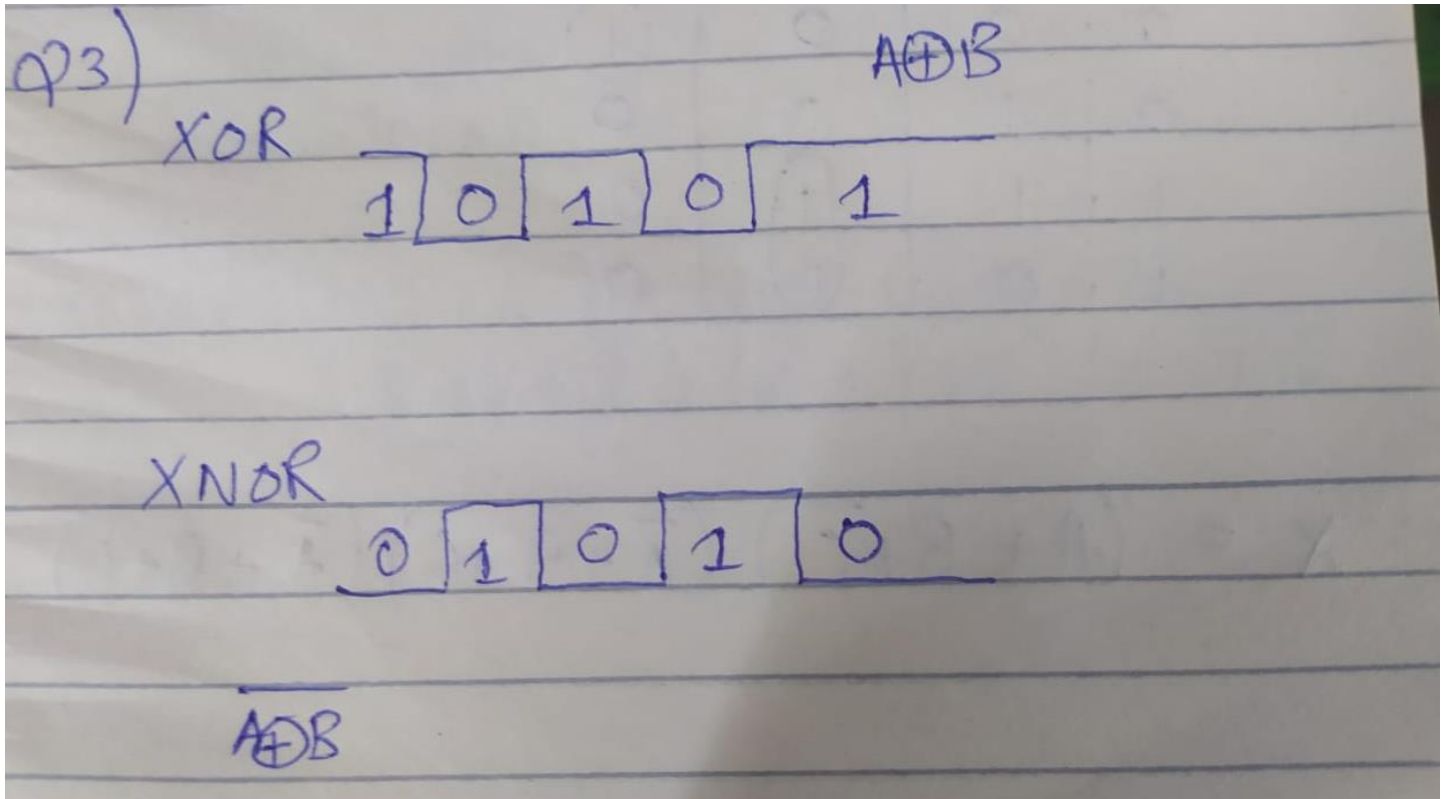 Q3)
A⊕B
XOR
1 0 1 0 1
XNOR
0 1 0 1 0
A̅⊕̅B̅